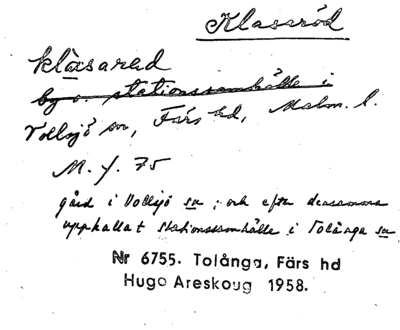 Klassröd
klàsarəd
by o. stationssamhälle i
Vollsjö sn, Färs hd, Malm. l.
M. f. 75
gård i Vollsjö sn ; och efter densamma
uppkallat stationssamhälle i Tolånga sn
Nr 6755. Tolånga, Färs hd
Hugo Areskoug 1958.